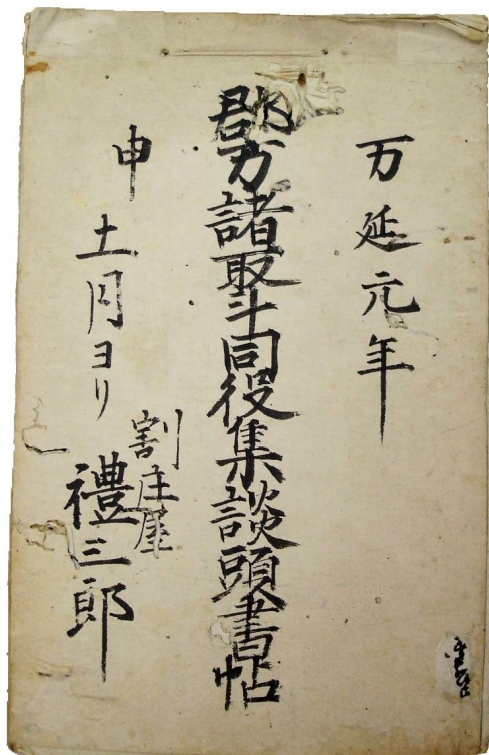 万延元年
郡方諸取斗同役集談頭書帖
申十一月ヨリ
割庄屋
禮三郎